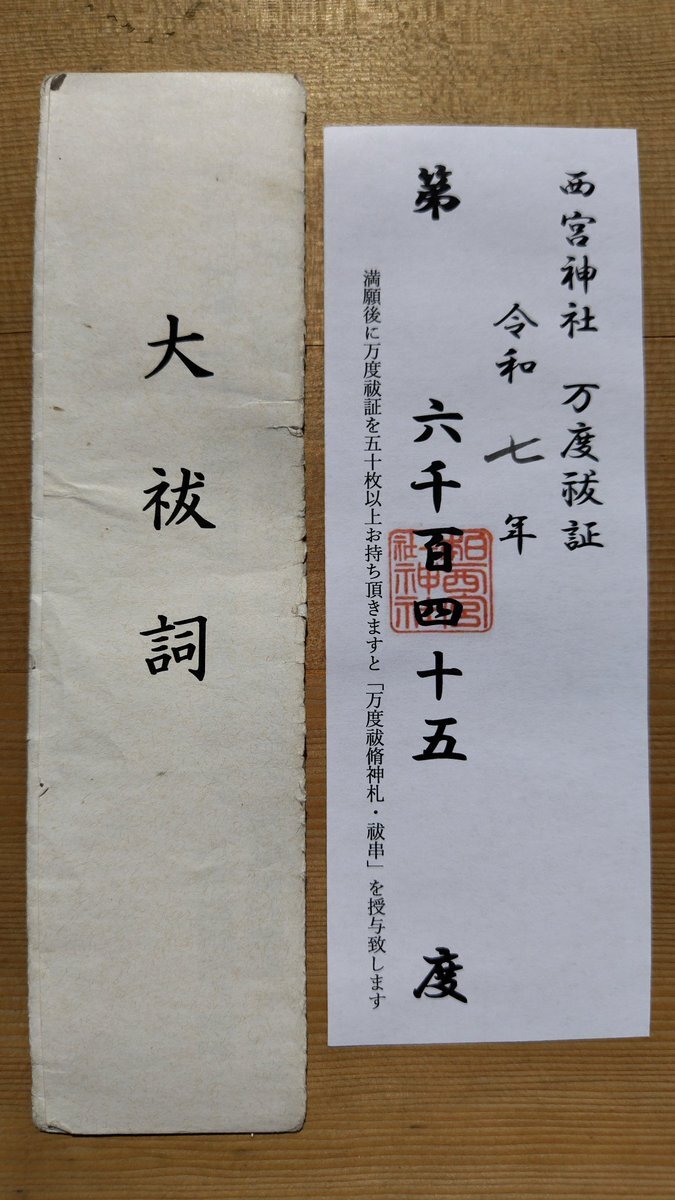 西宮神社 万度祓証
令和七年
第 六千百四十五 度
満願後に万度祓証を五十枚以上お持ち頂きますと「万度祓脩神札・祓串」を授与致します
大祓詞